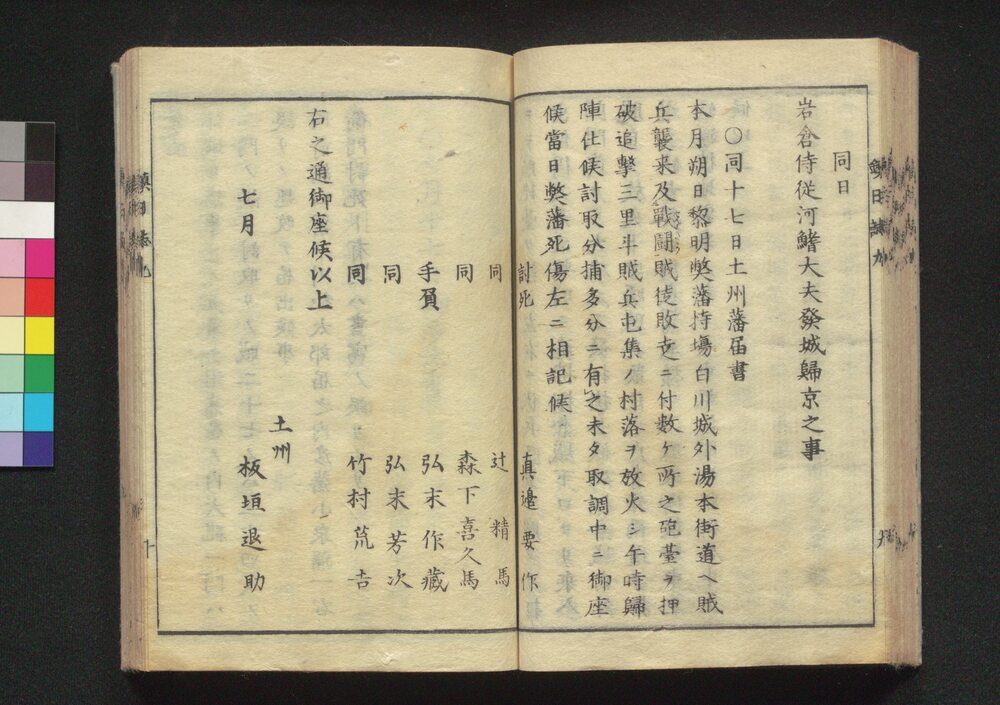 同日
岩倉侍従河鰭大夫發城歸京之事
〇同十七日土州藩届書
本月朔日黎明弊藩持場白川城外湯本街道ヘ賊
兵襲来及戰闘賊徒敗走ニ付数ヶ所之砲臺ヲ押
破追撃三里半賊兵屯集ノ村落ヲ放火シ午時歸
陣仕候討取分捕多分ニ有之未タ取調中ニ御座
候當日弊藩死傷左ニ相記候
討死 真邉要作
同 辻精馬
同 森下喜久馬
手負 弘末作藏
同 弘末芳次
同 竹村荒吉
右之通御座候以上
七月 土州
板垣退助